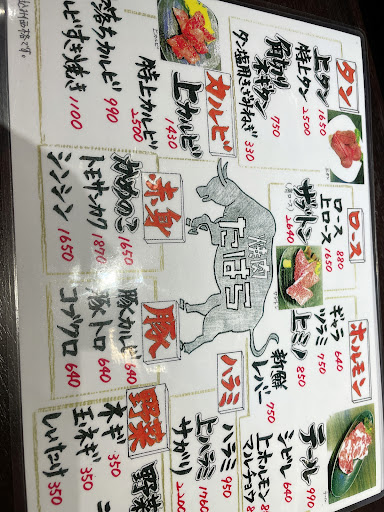 タン
上タン 1650
特上タン 2500
角切りネギタン 750
タン塩用きざみねぎ 330
カルビ
上カルビ 1430
特上カルビ 2500
落ちカルビ 990
ビすき焼き 1100
込み価格です。
ロース
ロース 880
上ロース 1650
ザブトン 2640
赤身
かめのこ 1650
トモサンカク 1870
シンシン 1650
焼肉
たはら
ホルモン
ギャラ 640
ツラミ 750
上ミノ 850
新鮮レバー 750
テール 990
シビレ 640
上ホルモン
マルチョウ
ハラミ
ハラミ 950
上ハラミ 1760
サガリ 2200
豚
豚カルビ 640
豚トロ 640
コブクロ 640
野菜
ネギ 350
玉ネギ 350
しいたけ 350
野菜